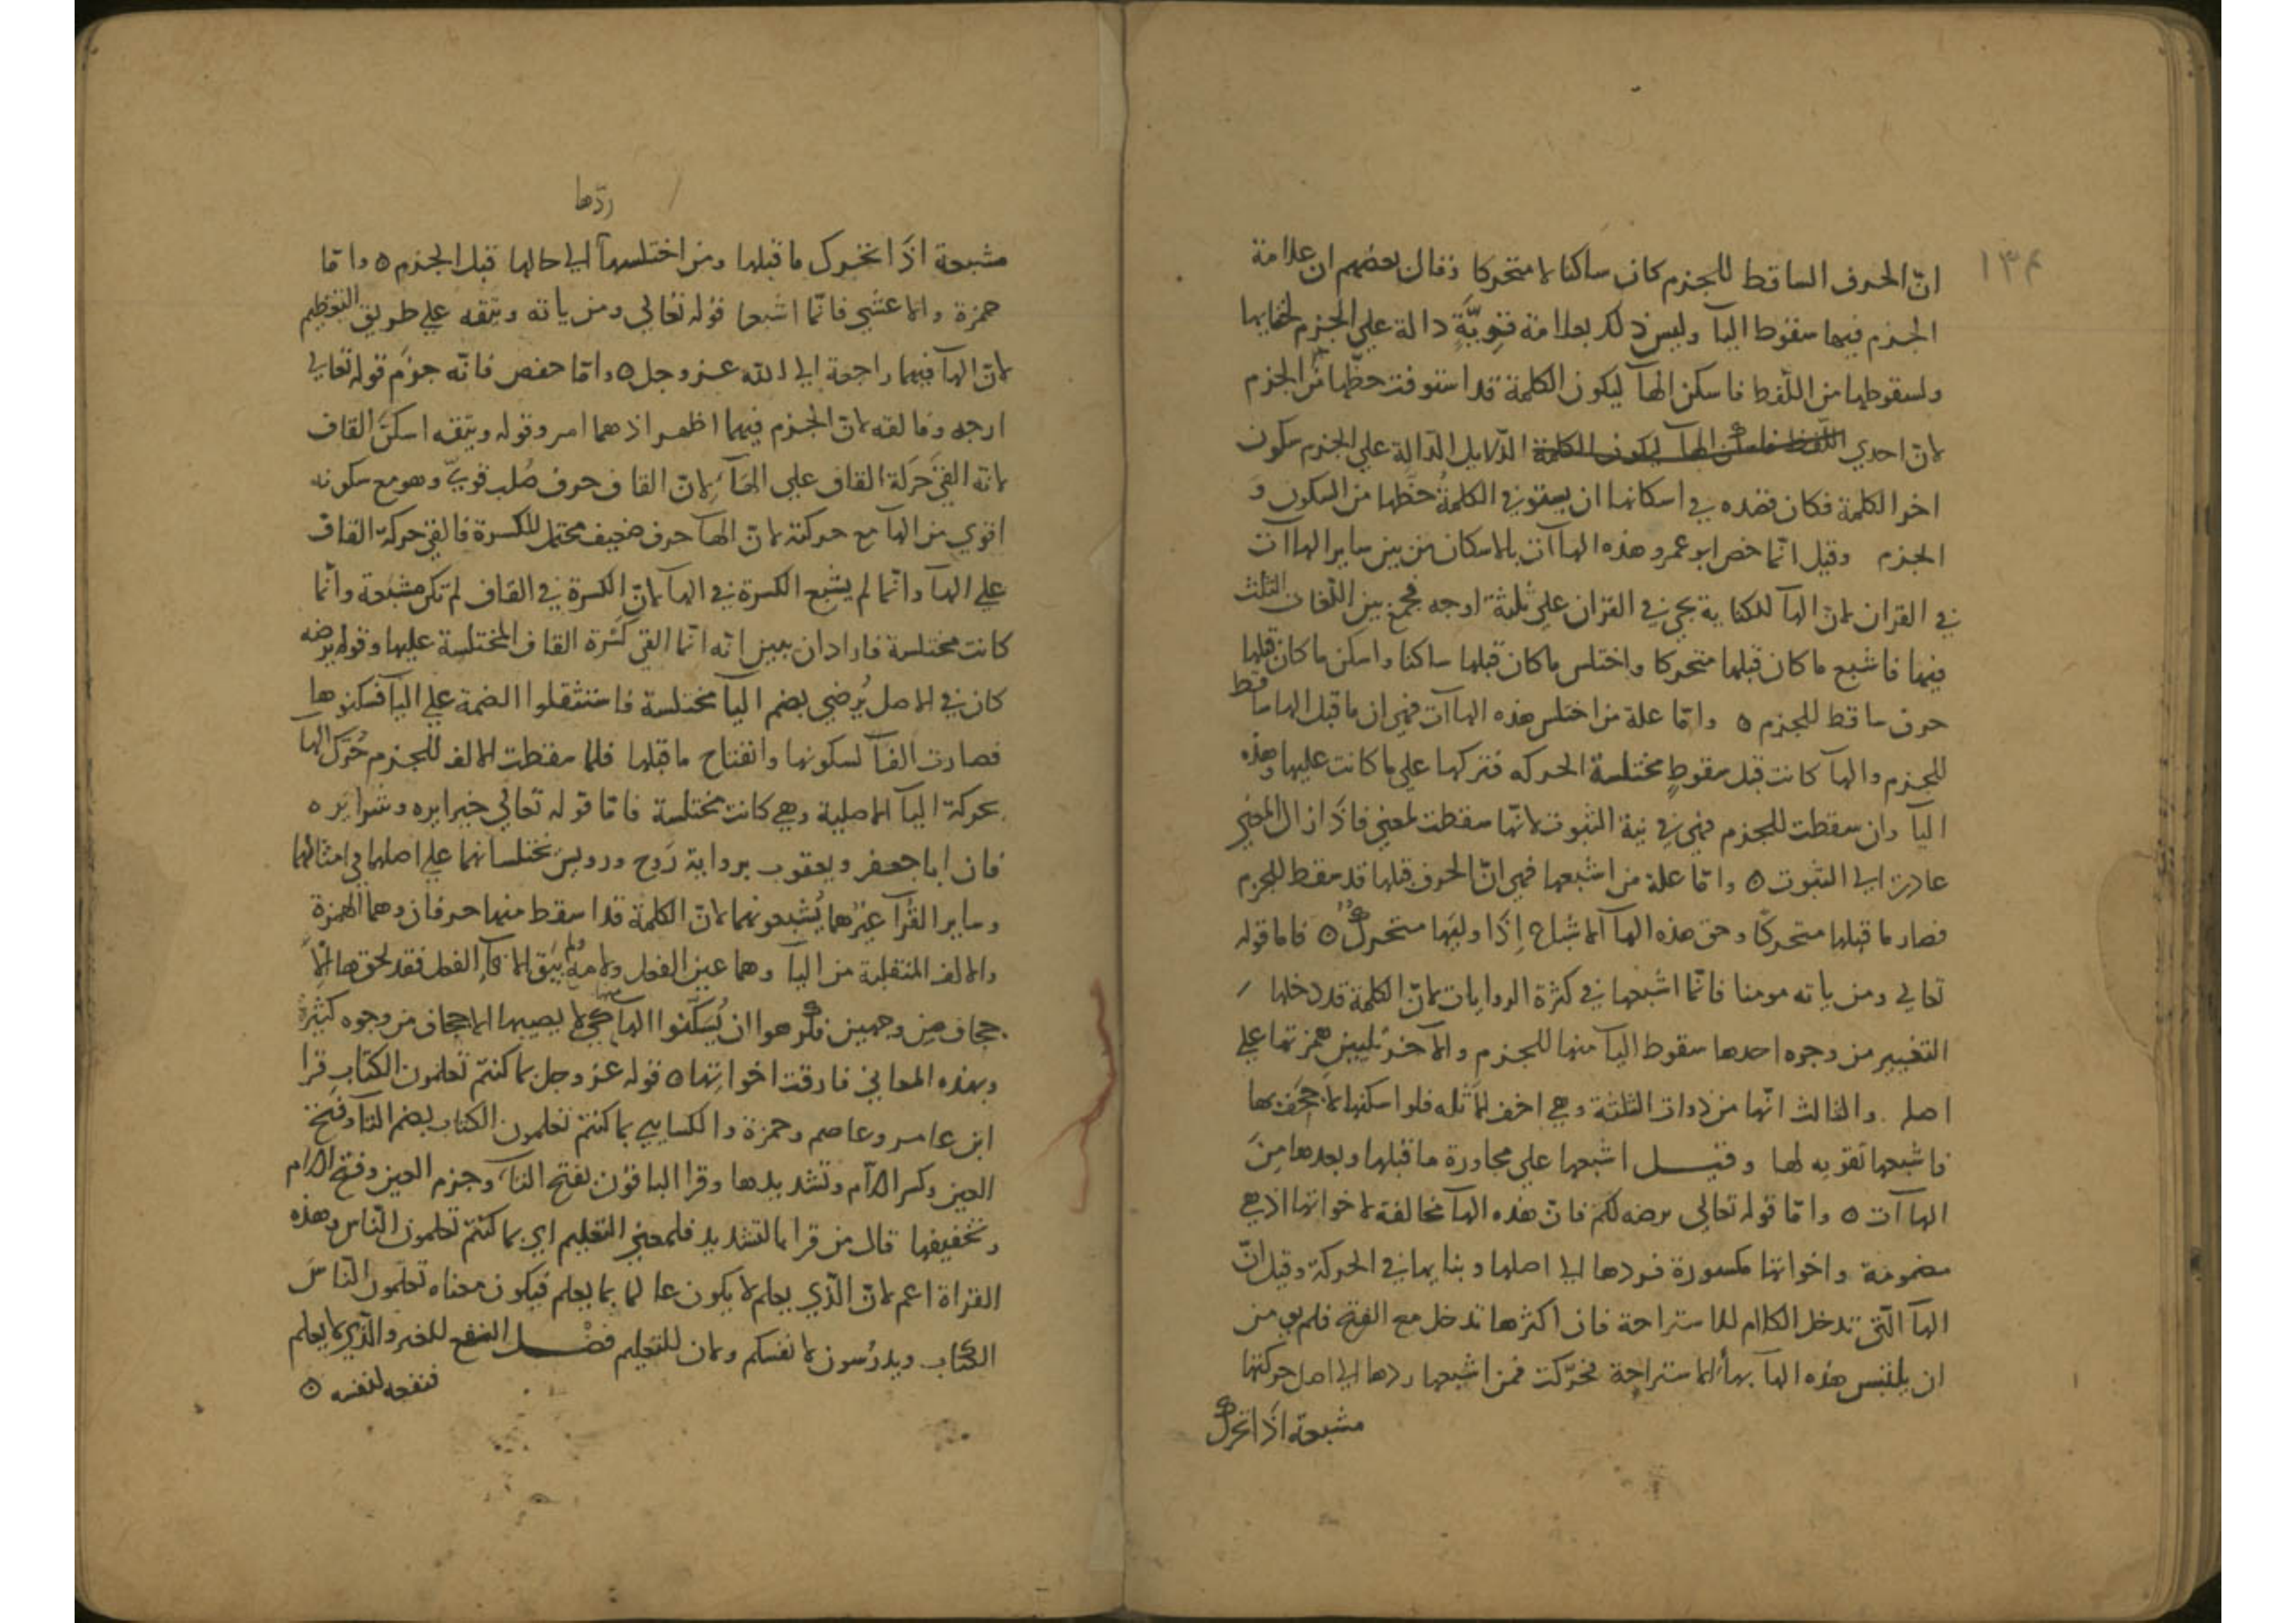 ١٣٤
انّ الحرف الساقط للجزم كان ساكنا لا متحركا وقال بعضهم ان علامة
الجزم فيها سقوط اليآ وليس ذلك بعلامة قويّةٍ دالة علي الجزم لخفايها
ولسقوطها من اللفظ فاسكن الهآ ليكون الكلمة قد استوفت حظّها من الجزم
لانّ احدي الدّلايل الدّالة علي الجزم سكون
اخر الكلمة فكان قصده في اسكانها ان يستوفي الكلمةُ حظّها من السكون و
الجزم وقيل انّما خص ابو عمرو هذه الهاآت بالاسكان من بين ساير الهاآت
في القران لانّ الهآ للكناية يجي في القران علي ثلثة اوجه فجمع بين اللّغات الثلث
فيها فاشبع ما كان قبلها متحركا واختلس ما كان قبلها ساكنا واسكن ما كان قبلها
حرف ساقط للجزم ٥ وامّا علة من اختلس هذه الهاآت فهي ان ما قبل الها ساقط
للجزم والهآ كانت قبل سقوطٍ مختلسة الحركه فتركها علي ما كانت عليها وهذه
اليآ وان سقطت للجزم فهي في نية الثبوت لانّها سقطت لمعني فاذا زال المعني
عادت الي الثبوت ٥ وامّا علة من اشبعها فهي انّ الحرف قبلها قد سقط للجزم
فصار ما قبلها متحركًا وحق هذه الهآ الاشباع إذا وليَها متحرك ٥ فاما قوله
تعالي ومن ياته مومنا فانّما اشبعها في كثرة الروايات لانّ الكلمة قد دخلها
التغيير من وجوه احدها سقوط اليآ منها للجزم والآخر تليين همزتها علي
اصله والثالث انّها من ذوات الثلثة وهي اخف الامثله فلو اسكنها لاجحف بها
فاشبعها تقويه لها وقيـل اشبعها علي مجاورة ما قبلها وبعدها مِنَ
الهاآت ٥ وامّا قوله تعالي يرضه لكم فانّ هذه الهآ مخالفة لاخواتها اذ هي
مضمومة واخواتها مكسورة فردها الي اصلها وبنايها في الحركة وقيل انّ
الهآ الّتي تدخل الكلام للاستراحة فان اكثرها تدخل مع الفتح فلم يومن
ان يلتبس هذه الهآ بهآ الاستراحة فحرّكت فمن اشبعها ردها الي اصل حركتها
مشبعة اذا تحرك
ردّها
مشبعة اذَا تحرك ما قبلها ومن اختلسهآ الي حالها قبل الجزم ٥ وامّا
حمزة والاعشي فانّما اشبعا قوله تعالي ومن ياته ويتقه علي طريق التعظيم
لانّ الهآ فيهما راجعة الي الله عز وجل ٥ وامّا حفص فانّه جزم قوله تعالي
ارجه وفالقه لانّ الجزم فيهما اظهر اذ هما امر وقوله ويتقه اسكنَ القاف
لانه القيَ حَركة القاف علي الهآ لانّ القاف حرف صُلب قويّ وهو مع سكونه
اقوي من الهآ مع حركته لانّ الهآ حرف ضعيف محتمل للكسرة فالقي حركة القاف
علي الهآ وانّما لم يشبع الكسرة في الهآ لانّ الكسرة في القاف لم تكن مشبعة وانّما
كانت مختلسة فاراد ان يبين انّه انّما القي كسْرة القاف المختلسة عليها وقوله يرضه
كان في الاصل يُرضي بضم اليآ مختلسة فاستثقلوا الضمة علي اليآ فسكنوها
فصارت الفآ لسكونها وانفتاح ما قبلها فلما سقطت الالف للجزم حُرّك الهآ
بحركة اليآ الاصلية وهي كانت مختلسة فامّا قوله تعالي خيرا يره وشرا يره
فان اباجعفر ويعقوب برواية رَوح ورويس يختلسانهما علي اصلهما في امثالهما
وساير القُرّآ غيرُهما يُشبعونهما لانّ الكلمة قد اسقط منها حرفان وهما الهمزة
والالف المنقلبة من اليآ وهما عين الفعل ولامه ولم يبَق الا فآ الفعل فقد لحق هآ الا
جحاف من وجهين فكرهوا ان يُسَكّنوا الهآ منها كي لا يصيبها الاجحاف من وجوه كثيرة
وبهذه المعاني فارقت اخواتها ٥ قوله عز وجل بما كنتم تعلمون الكتاب قرا
ابن عامر وعاصم وحمزة والكسايي بما كنتم تعلمون الكتاب بضم التآ وفتح
العين وكسر اللام وتشديدها وقرا الباقون بفتح التآ وجزم العين وفتح اللام
وتخفيفها قال من قرا بالتشديد فلمعني التعليم اي بما كنتم تعلمون النّاس وهذه
القراة اعم لانّ الّذي يعلم لا يكون عالما بما يعلم فيكون معناه تعلّمون النّاسَ
الكتاب ويدرُسون لانفسكم ولان للتعليم فضْـل النفع للغير والّذي لا يعلم
فنفعه لنفسه ٥